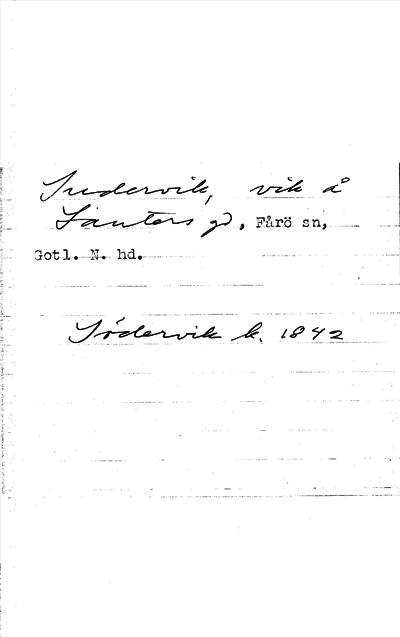 Sudervik, vik å
Lauters gd, Fårö sn,
Gotl. N. hd.
Södervik k. 1842